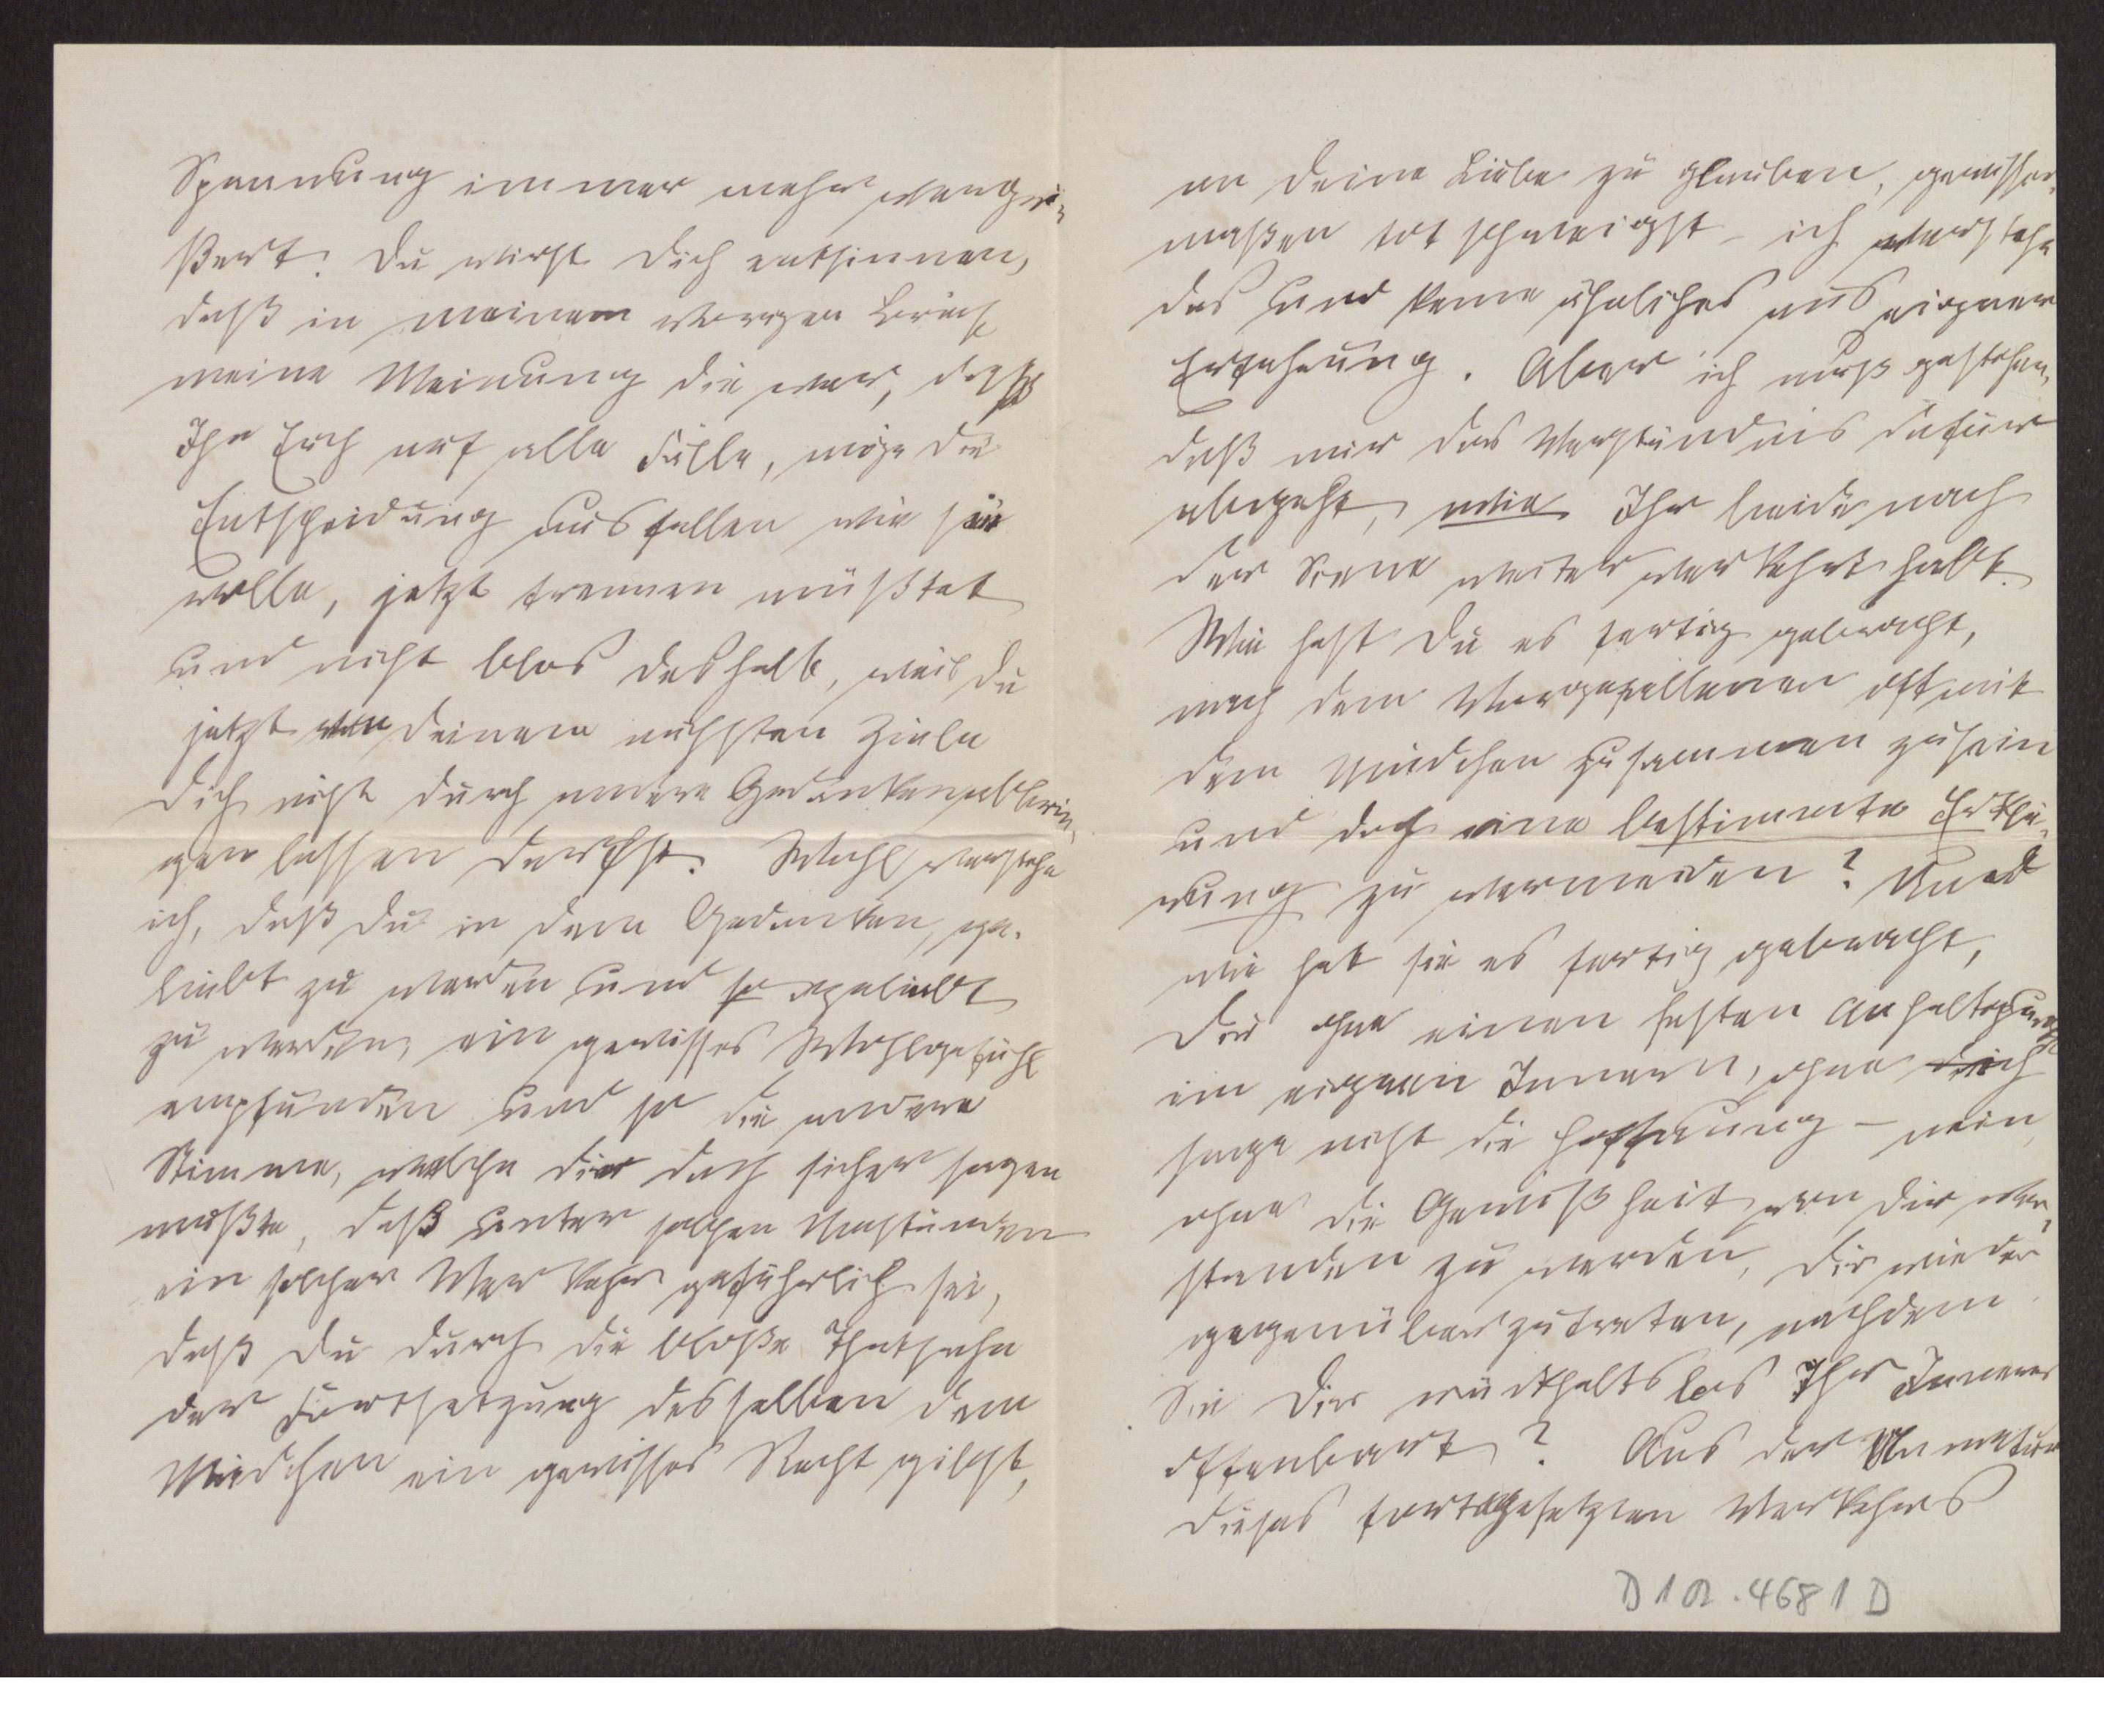 Spannung immer mehr vergrö-
ßert. Du wirst Dich entsinnen,
daß in meinem vorigen Briefe
meine Meinung die war, daß
Ihr Euch auf alle Fälle, möge die
Entscheidung ausfallen wie sie
wolle, jetzt trennen müßtet
und nicht blos deshalb, weil Du
jetzt von Deinem nächsten Ziele
Dich nicht durch andere Gedanken abbrin-
gen lassen darfst. Wohl verstehe
ich, daß Du in dem Gedanken, ge-
liebt zu werden und so geliebt
zu werden, ein gewisses Wohlgefühl
empfunden und so die andere
Stimme, welche Dir doch sicher sagen
mußte, daß unter solchen Umständen
ein solcher Verkehr gefährlich sei,
daß Du durch die bloße Thatsache
der Fortsetzung desselben dem
Mädchen ein gewisses Recht giebst,
an Deine Liebe zu glauben, gewisser-
maßen tot schweigst – ich verstehe
das und kenne ähnliches aus eigner
Erfahrung. Aber ich muß gestehen,
daß mir das Verständnis dafür
abgeht, wie Ihr beide nach
der Scene weiter verkehrt habt.
Wie hast Du es fertig gebracht,
nach dem Vorgefallenen oft mit
dem Mädchen zusammen zu sein
und doch eine bestimmte Erklä-
rung zu vermeiden? Und
wie hat sie es fertig gebracht,
Dir ohne einen festen Anhaltspunkt
im eignen Innern, ohne ich
sage nicht die Hoffnung – nein
ohne die Gewißheit von Dir ver-
standen zu werden, Dir wieder
gegenüberzutreten, nachdem
Sie Dir rückhaltslos Ihr Inneres
offenbart? Aus der Unnatur
dieses fortgesetzten Verkehrs
D 1 A . 468 1 D